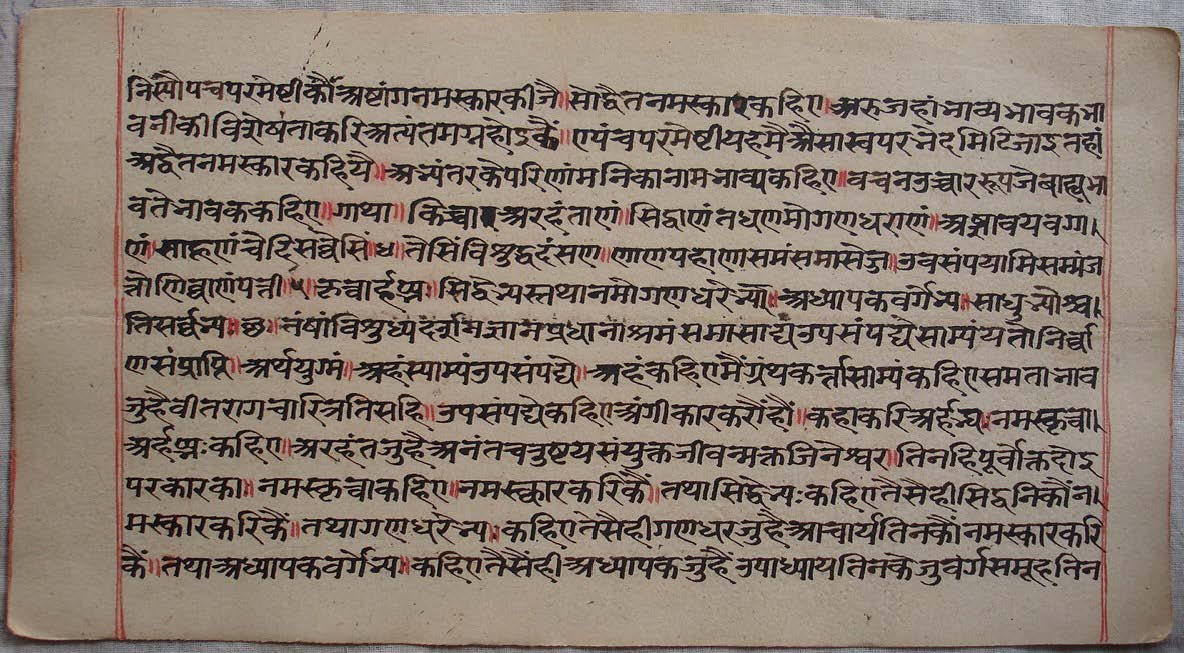 निस्यौ पंचपरमेष्टीकौं अष्टांगनमस्कारकीजै॥ सो द्वैतनमस्कारकहिए॥ अरु जहां भाव्य भावकभा
वनीकी विशेषताकरि अत्यंतमग्नहोऽकैं॥ ए पंचपरमेष्टी यह मै औसा स्वपर भेद मिटिजाऽ तहां
अद्वैतनमस्कारकहियै॥ अभ्यंतरकै परिणांमनिका नाम भाव्य कहिए॥ वचन उच्चाररूप जे बाह्य भा
व ते भावक कहिए॥ गाथा॥ किच्चा अरहंताणं॥ सिद्धाणं तध णमो गणधराणं॥ अज्झावयवग्गा।
णं॥ साहूणं चेदि सव्वेसिं॥ ४॥ तेसिं विशुद्धदंसण॥ णाण पहाणासमं समासेज्ज॥ उवसंपयामि सम्मं ज
त्तो णिव्वाणंपत्ती॥ ५॥ कृत्वार्हद्भ्यः॥ सिद्धेभ्यस्तथा नमो गणधरेभ्यः॥ अध्यापकवर्गेभ्यः॥ साधुभ्यौश्च।
तिसर्व्वेभ्यः॥ ४॥ तेषां विशुध्यदर्शनज्ञानप्रधानाश्रमं समासाद्य उपसंपद्ये साम्यं यतो निर्व्वा
णसंप्राप्ति॥ अर्थयुग्मं॥ अहं स्याम्यं उपसंपद्ये॥ अहं कहिए मैं ग्रंथकर्त्ता साम्यं कहिए समता भाव
जु है वीतरागचारित्र तिसहि॥ उपसंपद्ये कहिए अंगीकार करौं हौं॥ कहा करि अर्हद्भ्यः नमस्कृत्वा।
अर्हद्भ्यः कहिए॥ अरहंत जु है अनंतचतुष्टयसंयुक्त जीवन्मुक्त जिनेश्वर॥ तिनहि पूर्वोक्त दोऽ
परकारका॥ नमस्कृत्वा कहिए॥ नमस्कारकरिकैं॥ तथा सिद्धेभ्यः कहिए तैसैही सिद्धनिकौं न।
मस्कारकरिकैं॥ तथा गणधरेभ्यः कहिए तैसैही गणधर जु है आचार्य तिनकौं नमस्कारकरि
कैं॥ तथा अध्यापकवर्गेभ्यः॥ कहिए तैसैंही अध्यापक जु हैं उपाध्याय तिनके जु वर्ग समूह तिन